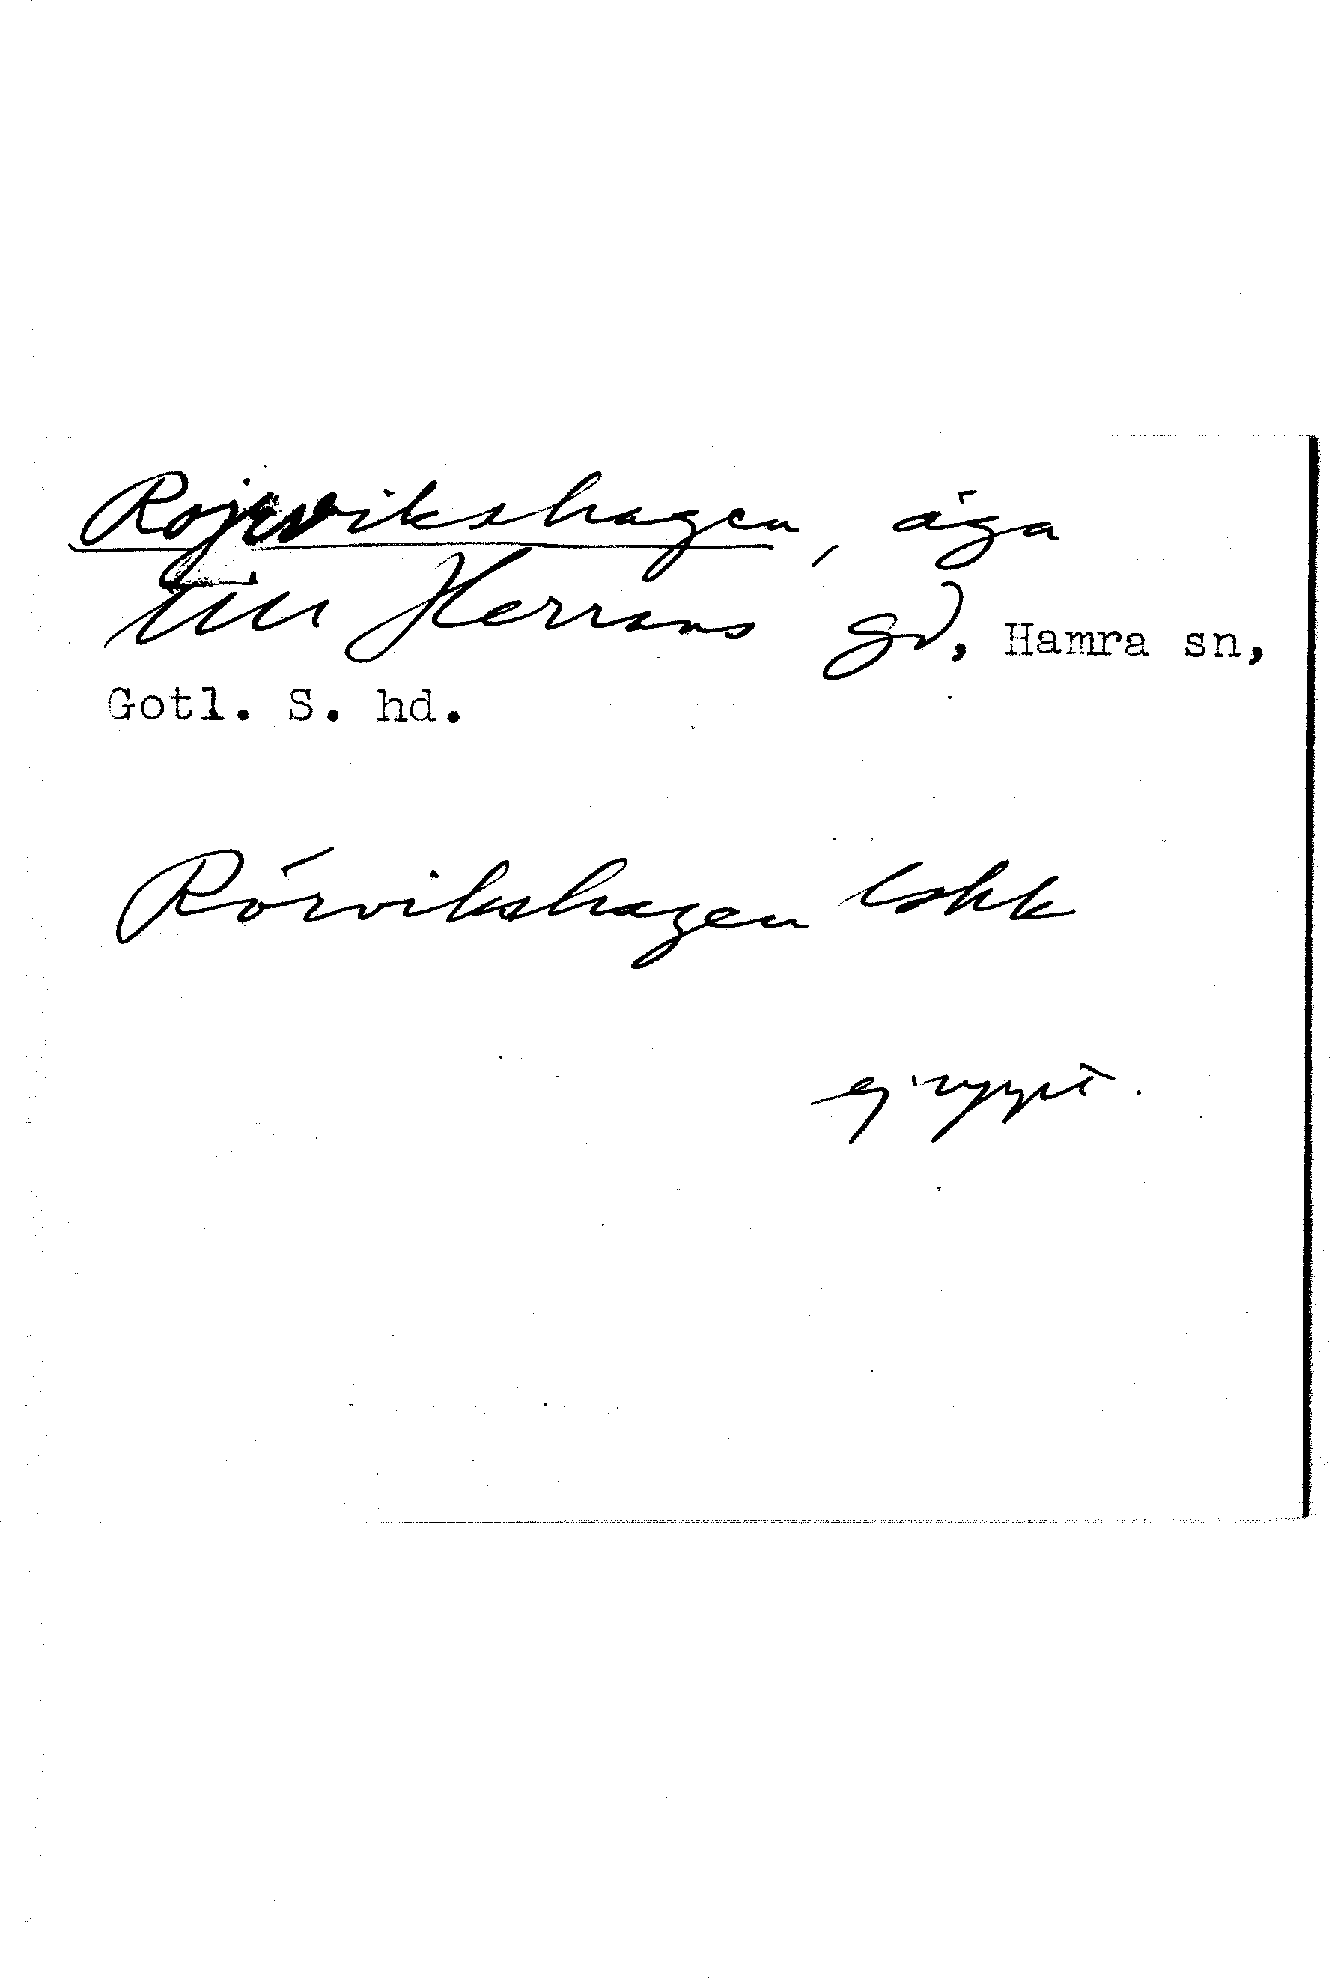 Rojrvikshagen, äga
till Herrans gd, Hamra sn,
Gotl. S. hd.
Rörvikshagen lskk
ej'uppt.